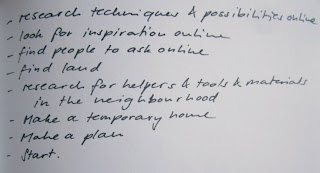 - research techniques & possibilities online
- look for inspiration online
- find people to ask online
- find land
- research for helpers & tools & materials
in the neighbourhood
- Make a temporary home
- Make a plan
- Start.